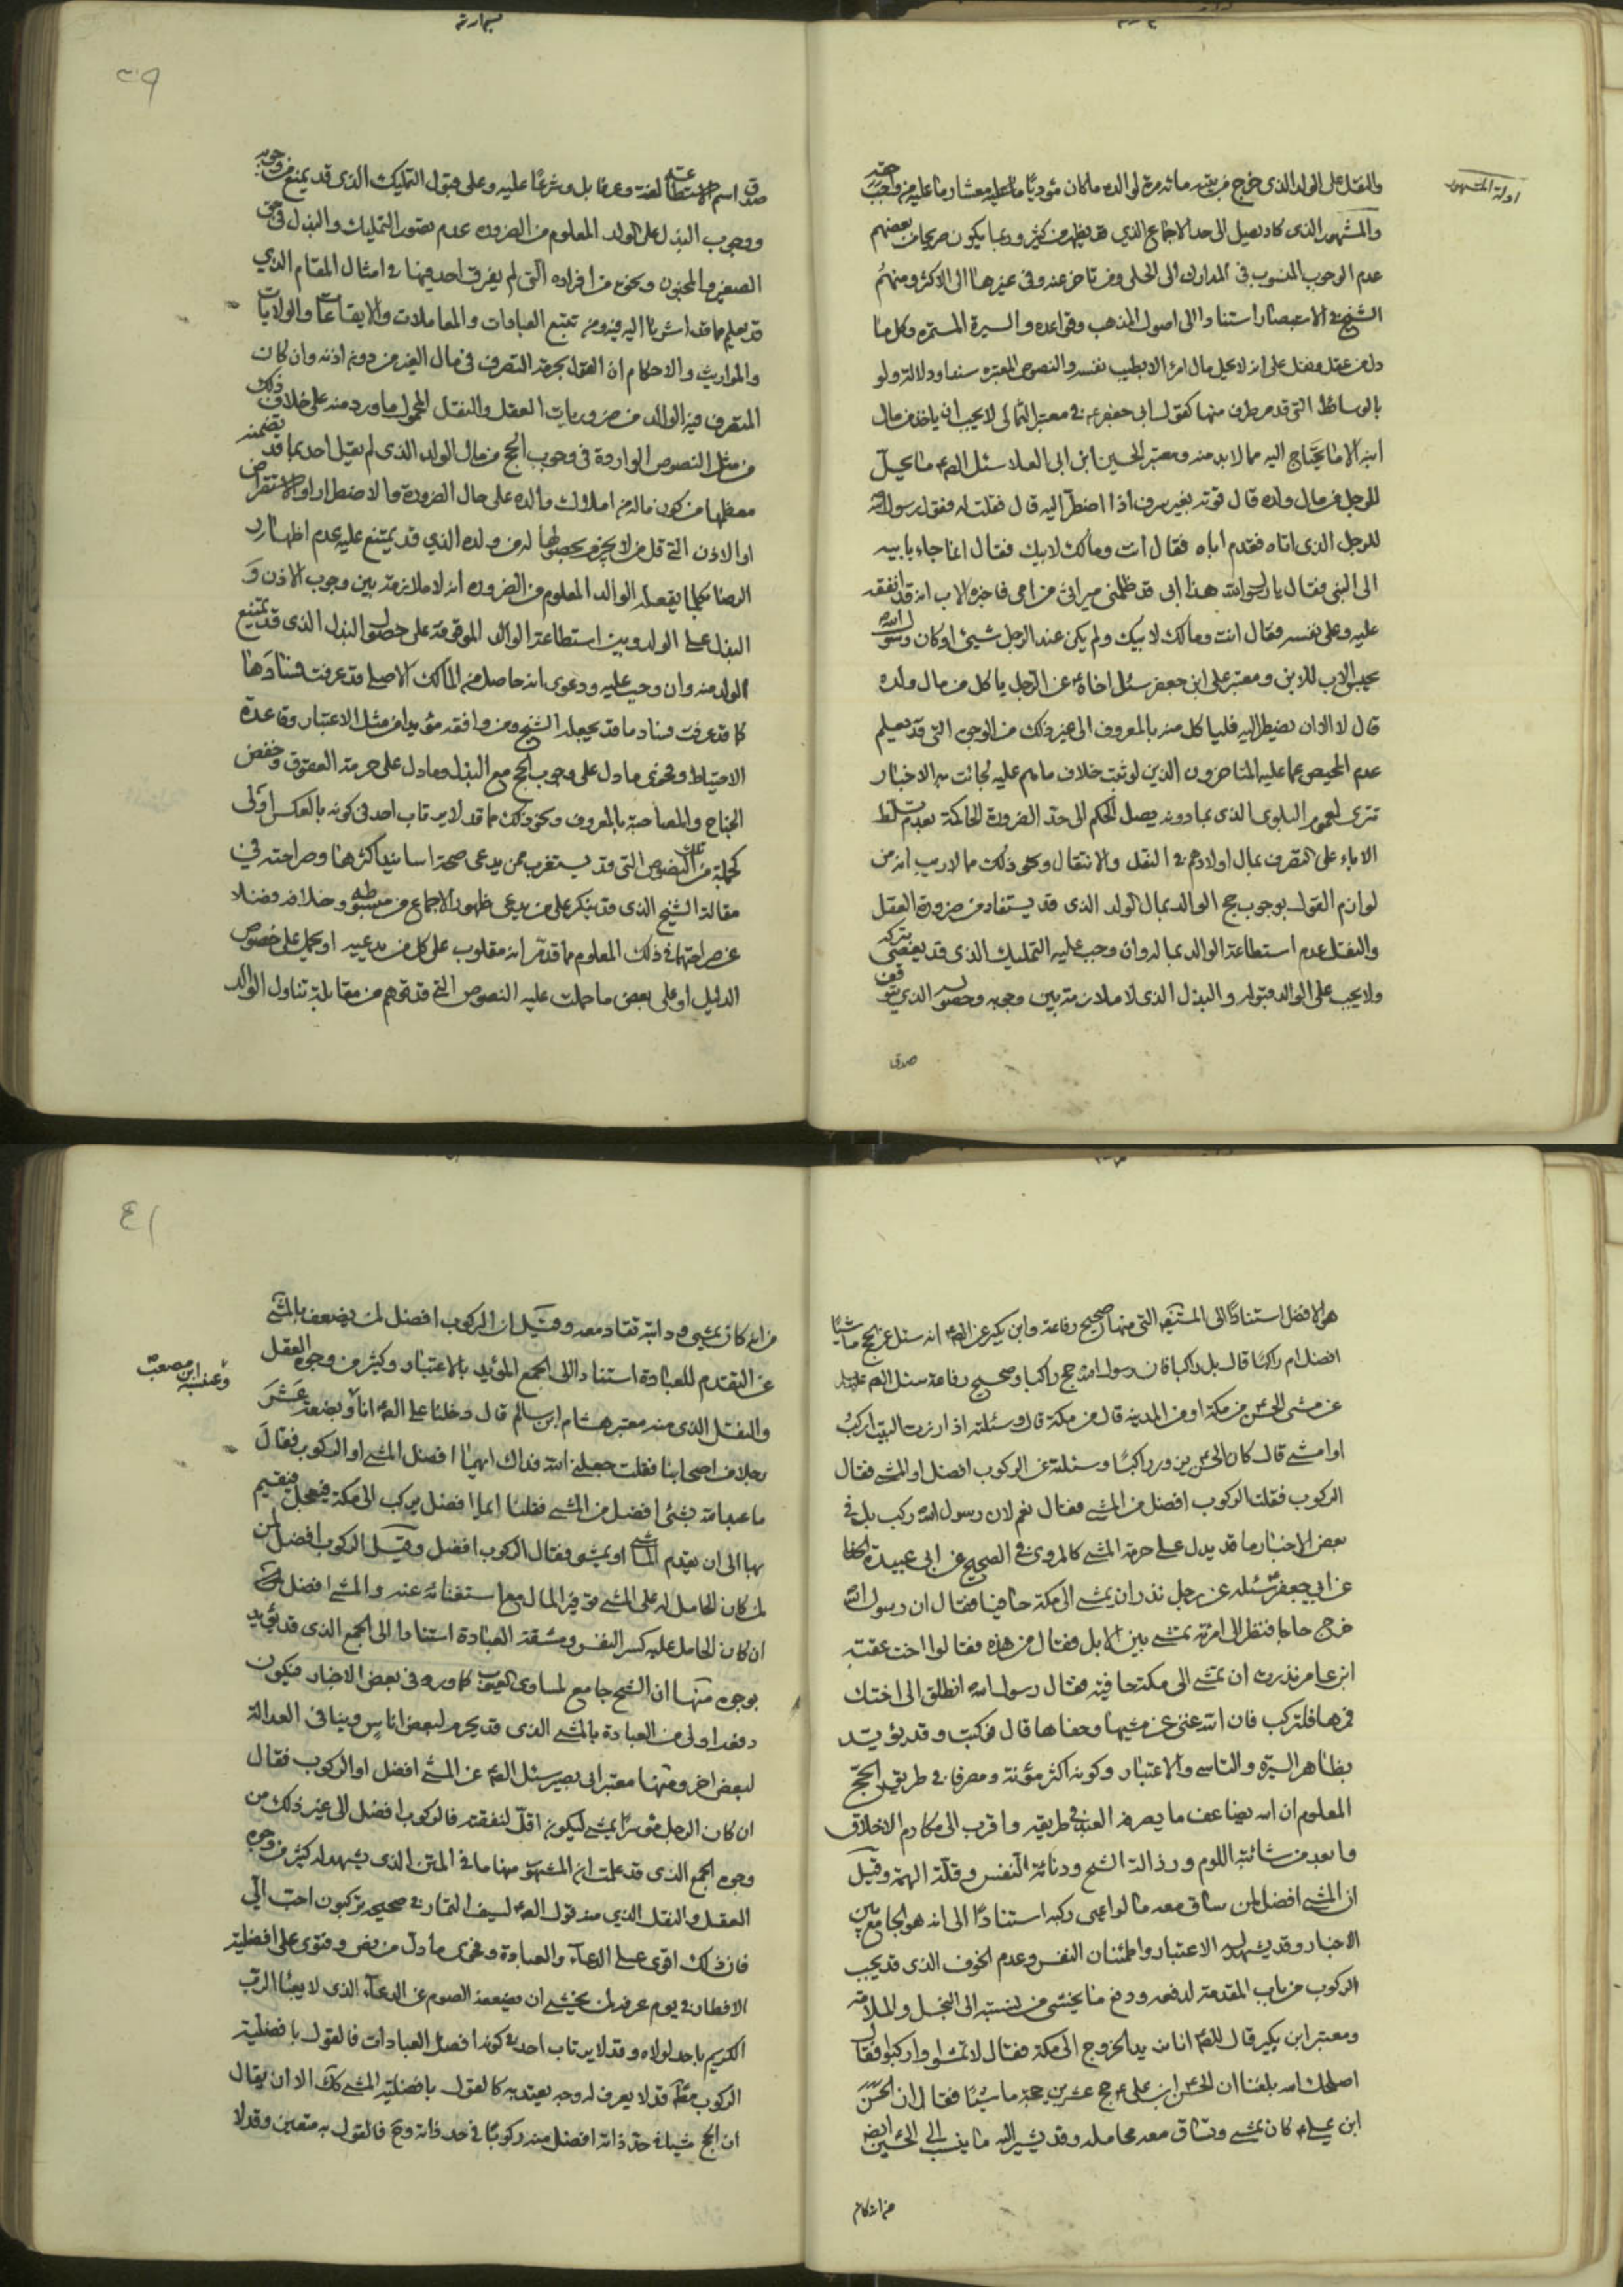 ادلة المشهور
والنقل على الولد الذي خرج من بقية مائه من لوالده ما كان مؤديا ما عليه معشار ما عليه من واجب حقه
والمشهور الذي كاد يصل الى حد الاجماع الذي قد يظهر من كثير وربما يكون صريحا من بعضهم
عدم الوجوب المنسوب في المدارك الى الحلي ومن تاخر عنه وفي غيرها الى الاكثر ومنهم
الشيخ في الاستبصار استنادا الى اصول المذهب وقواعده والسيرة المستمرة وكل ما
دل من عقل ونقل على انه لا يحل مال امرء الا بطيب نفسه والنصوص المعتبره سندا ودلالة ولو
بالوسائط التي قد مر طرف منها كقول ابي جعفر ع في معتبر الثمالي لا يحب ان ياخذ من مال
ابنه الا ما يحتاج اليه مما لا بد منه ومعتبر الحسين ابن ابي العلا سئل الصم ما يحل
للرجل من مال ولده قال قوته بغير سرف اذا اضطر اليه قال فقلت له فقول رسول الله
للرجل الذي اتاه فقدم اباه فقال انت ومالك لابيك فقال انما جاء بابيه
الى النبي فقال يا رسول الله هذا ابي قد ظلمني ميراثي من امي فاخبره الاب انه قد انفقه
عليه وعلى نفسه فقال انت ومالك لابيك ولم يكن عند الرجل شيئ اوكان رسول الله
يحبس الاب للابن ومعتبر علي ابن جعفر سئل اخاه ع عن الرجل ياكل من مال ولده
قال لا الا ان يضطر اليه فلياكل منه بالمعروف الى غير ذلك من الوجوه التي قد يعلم
عدم المحيص عما عليه المتاخرون الذين لو ثبت خلاف ما هم عليه لجائت به الاخبار
تترى لعموم البلوى الذي بما دونه يصل الحكم الى حد الضرورة الحاكمة بعدم تسلط
الاباء على التصرف بمال اولادهم في النقل والانتقال ونحو ذلك مما لا ريب انه من
لوازم القول بوجوب حج الوالد بمال الولد الذي قد يستفاد من ضرورة العقل
والنقل عدم استطاعة الوالد بماله وان وجب عليه التمليك الذي قد يعصي بتركه
ولا يجب على الوالد قبوله والبذل الذي لا ملازمة بين وجوبه وحصوله الذي يتوقف
صدق
صدق اسم الاستطاعة لغة وعرفا بل وشرعا عليه وعلى قبول التمليك الذي قد يمنع من وجوبه
ووجوب البذل على الولد المعلوم من الضروره عدم تصور التمليك والبذل في حق
الصغير والمجنون ونحوه من افراده التي لم يفرق احد فيها في امثال المقام الذي
قد يعلم مما قد اشرنا اليه فيه ومن تتبع العبادات والمعاملات والايقاعات والولايات
والمواريث والاحكام ان القول بحرمة التصرف في مال الغير من دون اذنه وان كان
المتصرف فيه الوالد من ضروريات العقل والنقل المحمول ما ورد منه على خلاف ذلك
من مثل النصوص الواردة في وجوب الحج من مال الولد الذي لم يقل احد بما قد تضمنه
معظمها من كون ماله من املاك والده على حال الضرورة والاضطرار او الاستقراض
او الاذن التي قل من لا يجزم بحصولها له من ولده الذي قد يمتنع عليه عدم اظهار
الرضا بكلما يفعله الوالد المعلوم من الضروره انه لا ملازمة بين وجوب الاذن و
البذل على الولد وبين استطاعة الوالد الموقوفة على حصول البذل الذي قد يمتنع
الولد منه وان وجب عليه ودعوى انه حاصل من المالك الاصلي قد عرفت فسادها
كما قد عرفت فساد ما قد يجعله الشيخ ومن وافقه مؤيدا من مثل الاعتبار وقاعدة
الاحتياط وفحوى ما دل على وجوب الحج مع البذل وما دل على حرمة العقوق وخفض
الجناح والمصاحبة بالمعروف ونحو ذلك مما قد لا يرتاب احد في كونه بالعكس اولى
كجملة من تلك النصوص التي قد يستغرب ممن يدعي صحة اسانيد اكثرها وصراحته في
مقالة الشيخ الذي قد ينكر على من يدعي ظهور الاجماع من مبسوطه وخلافه فضلا
عن صراحتهما في ذلك المعلوم مما قد مر انه مقلوب على كل من يدعيه او يحمل على خصوص
الدليل او على بعض ما حملت عليه النصوص التي قد تتوهم من مقابلة تناول الوالد
هو الافضل استنادا الى المستفيضة التي منها صحيح رفاعة وابن بكير عن الصم انه سئل عن الحج ماشيا
افضل ام راكبا قال بل راكبا فان رسول الله حج راكبا وصحيح رفاعة سئل الصم عليه
عن مشي الحسن من مكة او من المدينه قال من مكة قال وسئلته اذا زرت البيت اركب
او امشي قال كان الحسن يزور راكبا وسئلته عن الركوب افضل او المشي فقال
الركوب فقلت الركوب افضل من المشي فقال نعم لان رسول الله ركب بل في
بعض الاخبار ما قد يدل على حرمة المشي كالمروي في الصحيح عن ابي عبيدة الحذا
عن ابي جعفر سئله عن رجل نذر ان يمشي الى مكة حافيا فقال ان رسول الله
خرج حاجا فنظر الى امرئة تمشي بين الابل فقال من هذه فقالوا اخت عقبة
ابن عامر نذرت ان تمشي الى مكة حافية فقال رسول الله انطلق الى اختك
فمرها فلتركب فان الله غني عن مشيها وحفاها قال فركبت وقد يؤيد
بظاهر السيرة والتاسي والاعتبار وكونه اكثر مؤنة ومصرفا في طريق الحج
المعلوم ان الله يضاعف ما يصرفه العبد في طريقه واقرب الى مكارم الاخلاق
وابعد من شائبة اللوم ورذالة الشح ودنائة النفس وقلة الهمة وقيل
ان المشي افضل لمن ساق معه ما لو اعيى ركبه استنادا الى انه هو الجامع بين
الاخبار وقد يشهد له الاعتبار واطمئنان النفس وعدم الخوف الذي قد يجب
الركوب من باب المقدمة لدفعه ودفع ما يخشى من نسبته الى البخل والملامة
ومعتبر ابن بكير قال للصم انا نريد الخروج الى مكة فقال لا تمشوا واركبوا فقال
اصلحك الله بلغنا ان الحسن ابن علي ع حج عشرين حجة ماشيا فقال ان الحسن
ابن علي ع كان يمشي وتساق معه محامله وقد يشير اليه ما ينسب الى الحسين ايضا
من انه كان
من انه كان يمشي ودابته تقاد معه وقيل ان الركوب افضل لمن يضعف بالمشي
عن التقدم للعبادة استنادا الى الجمع المؤيد بالاعتبار وكثير من وجوه العقل
والنقل الذي منه معتبر هشام ابن سالم قال دخلنا على الصم انا وبضعة عشر
وعنبسة ابن مصعب
رجلا من اصحابنا فقلت جعلني الله فداك ايهما افضل المشي او الركوب فقال
ما عبد الله بشئ افضل من المشي فقلنا ايما افضل يركب الى مكة فيعجل فيقيم
بها الى ان يقدم الماشي او يمشي فقال الركوب افضل وقيل الركوب افضل لمن
لمن كان الحامل له على المشي توفير المال مع استغنائه عنه والمشي افضل
ان كان الحامل عليه كسر النفس ومشقة العبادة استنادا الى الجمع الذي قد يؤيد
بوجوه منها ان الشح جامع لمساوي العيوب كما ورد في بعض الاخبار فيكون
دفعه اولى من العبادة بالمشي الذي قد يحرم لبعض اناس وينافي العدالة
لبعض اخر ومنها معتبر ابي بصير سئل الصم عن المشي افضل او الركوب فقال
ان كان الرجل موسرا يمشي ليكون اقل لنفقته فالركوب افضل الى غير ذلك من
وجوه الجمع الذي قد علمت ان المشهور منها ما في المتن الذي يشهد له كثير من وجوه
العقل والنقل الذي منه قول الصم لسيف التمار في صحيحه تركبون احب الي
فان ذلك اقوى على الدعاء والعبادة وفحوى ما دل من نص وفتوى على افضلية
الافطار في يوم عرفة لمن يخشى ان يضعفه الصوم عن الدعاء الذي لا يعبأ الرب
الكريم باحد لولاه وقد لا يرتاب احد في كونه افضل العبادات فالقول بافضلية
الركوب مطلقا قد لا يعرف له وجه يعتد به كالقول بافضلية المشي كك الا ان يقال
ان الحج مشيا في حد ذاته افضل منه ركوبا في حد ذاته وح فالقول به متعين وقد لا